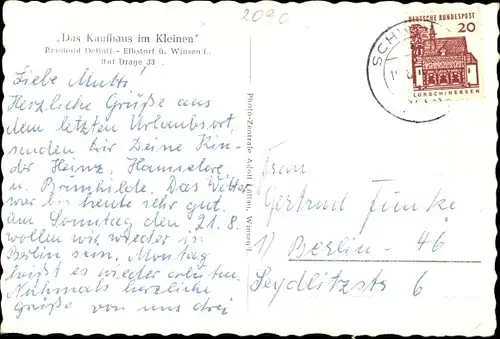 2090
„Das Kaufhaus im Kleinen"
Elbstorf ü. Winsen/L.
Ruf Drage 33
Liebe Mutti!
Herzliche Grüße aus
dem letzten Urlaubsort,
senden wir Deine Kin-
der Heinz, Hannelore
u. Brunhilde. Das Wetter
war bis heute sehr gut
am Sonntag den 21.8.
wollen wir wieder in
Berlin sein. Montag
heißt es wieder arbeiten.
Nochmals herzliche
Grüße von uns drei
Photo-Zentrale Adolf Winsen/L.
DEUTSCHE BUNDESPOST
20
LORSCH/HESSEN
SCHW
Frau
Gertrud Funke
1) Berlin - 46
Seydlitzstr 6